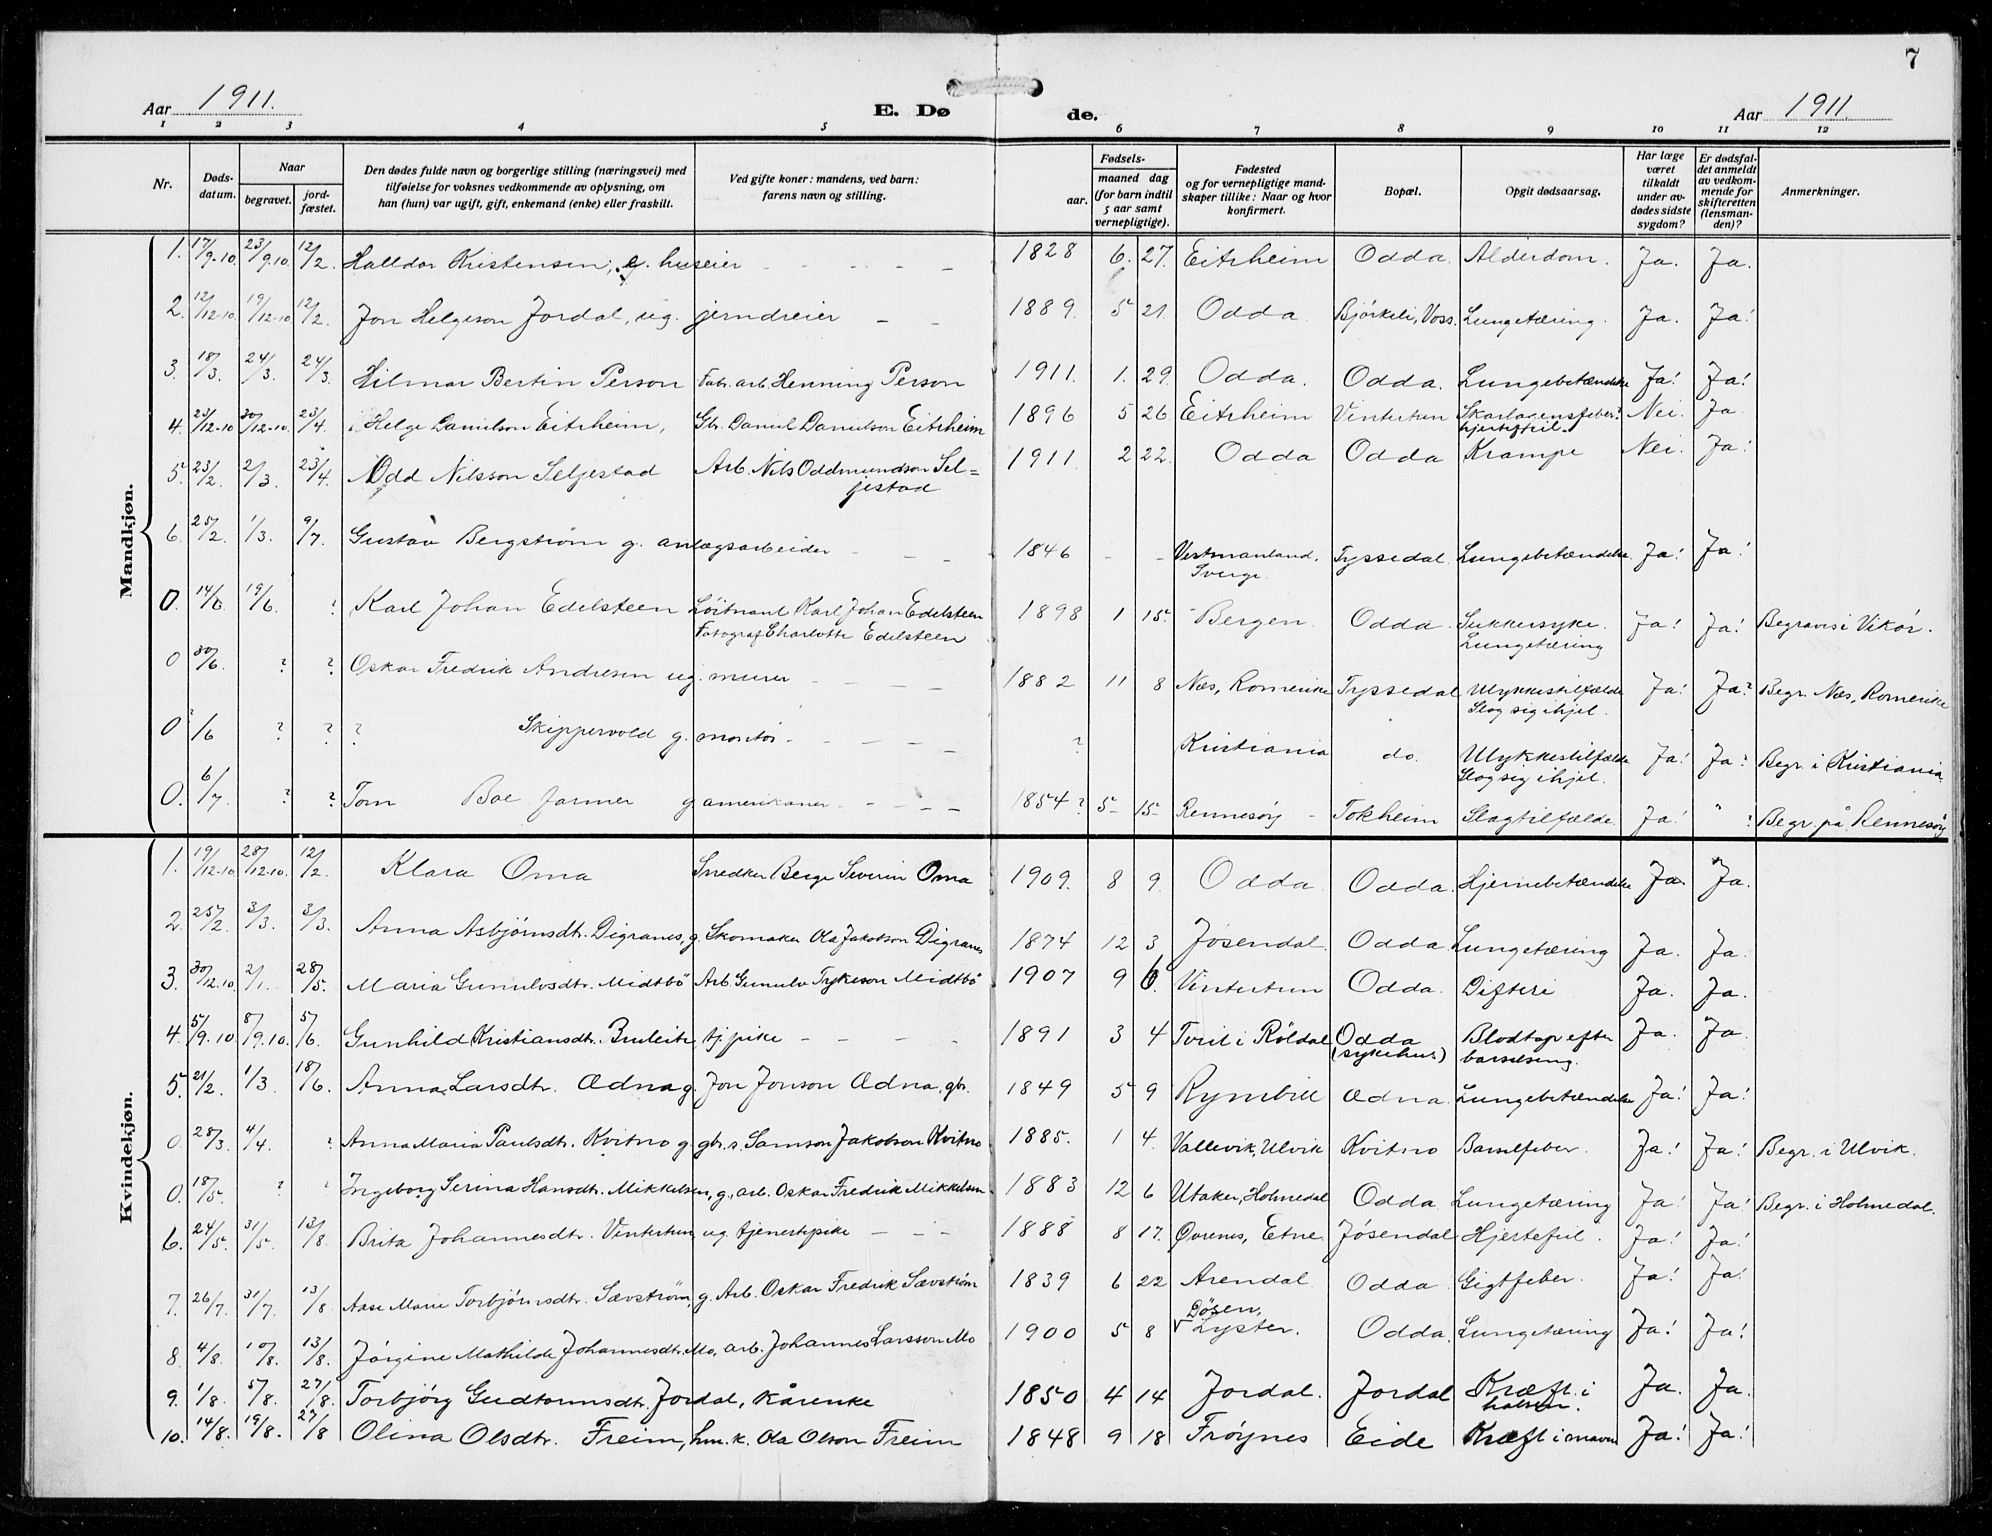 7
Aar 1911.
E. Dø
de.
Aar 1911.
1 2 3 4 5 6 7 8 9 10 11 12
Nr.
Døds-
datum.
Naar
begravet.
jord-
fæstet.
Den dødes fulde navn og borgerlige stilling (næringsvei) med
tilføielse for voksnes vedkommende av oplysning, om
han (hun) var ugift, gift, enkemand (enke) eller fraskilt.
Ved gifte koner: mandens, ved barn:
farens navn og stilling.
Fødsels-
aar.
maaned dag
(for barn indtil
5 aar samt
vernepligtige).
Fødested
og for vernepligtige mand-
skaper tillike: Naar og hvor
konfirmert.
Bopæl.
Opgit dødsaarsag.
Har læge
været
tilkaldt
under av-
dødes sidste
sygdom?
Er dødsfal-
det anmeldt
av vedkom-
mende for
skifteretten
(lensman-
den)?
Anmerkninger.
Mandkjøn.
1. 17/9-10 23/9.10. 12/2. Halldor Kristensen, g. huseier - - - - 1828 6. 27. Eitrheim Odda. Alderdom. Ja. Ja.
2. 12/12-10 19/12-10 12/2. Jon Helgeson Jordal, ug. jerndreier - - 1889. 5 21. Odda Bjørkeli, Voss. Lungetæring. Ja. Ja!
3. 18/3. 24/3. 24/3. Hilmar Bertin Person Fabr. arb. Henning Person 1911. 1. 29. Odda. Odda. Lungebetændelse Ja! Ja!
4. 23/12-10 30/12-10. 23/4. Helge Danielson Eitrheim, Gbr. Daniel Danielson Eitrheim 1896 5 26 Eitrheim Vintertun Skarlagensfeber? Nei. Ja
hjertefeil.
5. 23/2. 2/3. 23/4. Odd Nilsson Seljestad Arb. Nils Oddmundson Sel= 1911. 2 22. Odda Odda Krampe Nei. Ja!
jestad
6. 25/2. 1/3. 9/7. Gustav Bergstrøm g. anlægsarbeider - - - 1846 - - Vestmanland, Tyssedal. Lungebetændelse Ja! Ja!
Sverge.
0. 14/6 19/6. ? Karl Johan Edelsteen Løitnant Karl Johan Edelsteen 1898 1 15. Bergen. Odda Sukkersyke. Ja! Ja! Begraves i Vikør.
Fotograf Charlotte Edelsteen Lungetæring
0 30/6. ? ? Oskar Fredrik Andresen ug. murer - - - - 1882 11 8 Næs, Romerike Tyssedal Ulykkestilfælde Ja! Ja? Begr. Næs, Romerike
Slog sig ihjel.
0 ?/6 ? ? ? Skippervold g. montør - - - - - ? Kristiania do. Ulykkestilfælde Ja! Ja? Begr. i Kristiania
Slog sig ihjel.
0. 6/7. ? ? Tom Boe farmer g amerikaner - - - - 1854? 5- 15- Rennesøy - Tokheim Slagtilfælde. Ja! " ? Begr. på Rennesøy
Kvindekjøn.
1. 19/12-10 28/12-10. 12/2. Klara Oma Snedker Berge Severin Oma 1909. 8 9. Odda Odda. Hjernebetændelse Ja. Ja.
2. 25/2. 3/3. 3/3. Anna Asbjørnsdtr. Digranes, g. Skomaker Ola Jakobson Digranes 1874 12 3 Jøsendal. Odda Lungetæring Ja. Ja.
3. 30/12.10. 2/1. 28/5. Maria Gunulvsdtr. Midtbø Arb. Gunulv Tykeson Midtbø 1907 9 6. Vintertun Odda. Difteri Ja. Ja.
4. 5/9.10 8/9.10. 5/6. Gunhild Kristiansdtr. tj. pike - - - - 1891 3 4 i Røldal Odda Blodtap efter Ja. Ja.
(sykehus) barselseng.
5. 21/2. 1/3. 18/6. Anna Larsdtr. Ædna g. Jon Jonson Ædna, gbr. 1849 5 9 Ædna. Lungebetændelse Ja! Ja!
0 28/3. 4/4. ? Anna Maria Paulsdtr. Kvitno g. gbr. s. Samson Jakobson Kvitno 1885. 1 4. Vallevik, Ulvik Kvitno Barselfeber. Ja! Ja! Begr. i Ulvik.
0. 18/5. ? ? Ingeborg Serina Hansdtr. Mikkelsen, g., arb. Oskar Fredrik Mikkelsen 1883 12 6 Utaker, Holmedal Odda Lungetæring Ja! Ja! Begr. i Holmedal.
6. 24/5. 31/5. 13/8. Brita Johannesdtr. Vintertun, ug. tjenestepike - - - 1888 8 17. Øvrenes, Etne. Jøsendal Hjertefeil. Ja! Ja!
7. 26/7. 31/7. 13/8. Aase Marie Torbjørnsdtr. Sævstrøm, g. Arb. Oskar Fredrik Sævstrøm 1839 6 22 Arendal Odda Gigtfeber. Ja! Ja!
8. 4/8. 10/8. 13/8. Jørgine Mathilde Johannesdtr. Mo, arb. Johannes Larsson Mo 1900 5 8 Døsen, Odda. Lungetæring Ja! Ja!
Lyster.
9. 1/8. 5/8. 27/8. Torbjørg Gudtormsdtr. Jordal, kårenke 1850 4 14 Jordal. Jordal Kræft i Ja. Ja.
halsen.
10. 14/8. 19/8. 27/8 Olina Olsdtr. Freim, hm. k. Ola Olson Freim 1848 9 18 Frøynes Eide Kræft i maven Ja! Ja!